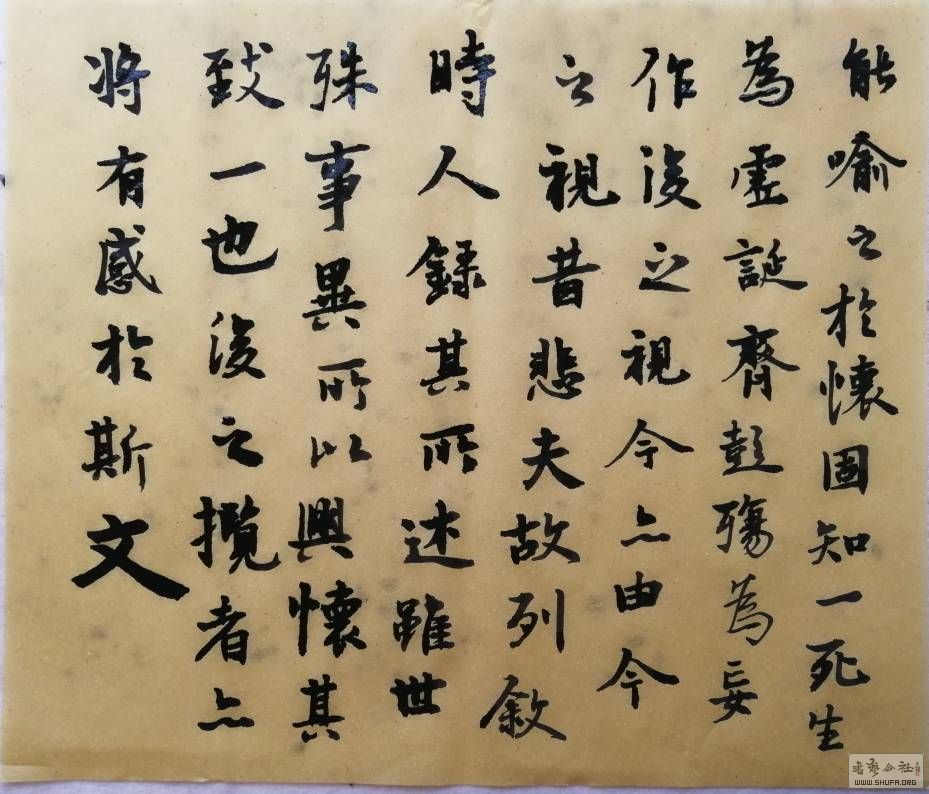 能喻之於懷固知一死生
為虛誕齊彭殤為妄
作後之視今亦由今
之視昔悲夫故列敘
時人錄其所述雖世
殊事異所以興懷其
致一也後之攬者亦
將有感於斯文
書藝公社
WWW.SHUFA.ORG